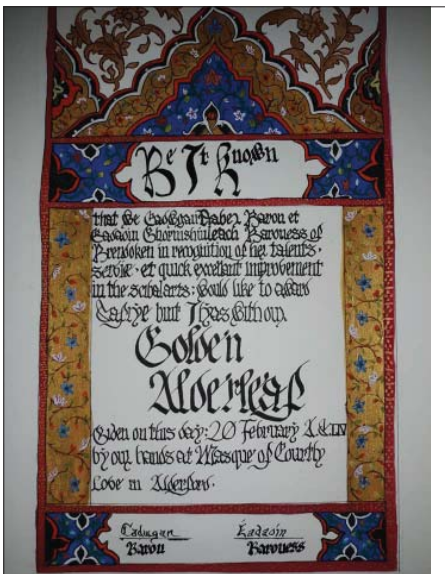 Be It Known
that We Cadwgan Baron et
Eadaoin Baroness of
in recognition of her talents,
service, et quick excellent improvement
in the scribal arts; would like to award
but with our
Golden
Alderleaf
Given on this day: 20 February
by our hands at Masque of Courtly
Love in Alderford.
Cadwgan Eadaoin
Baron Baroness